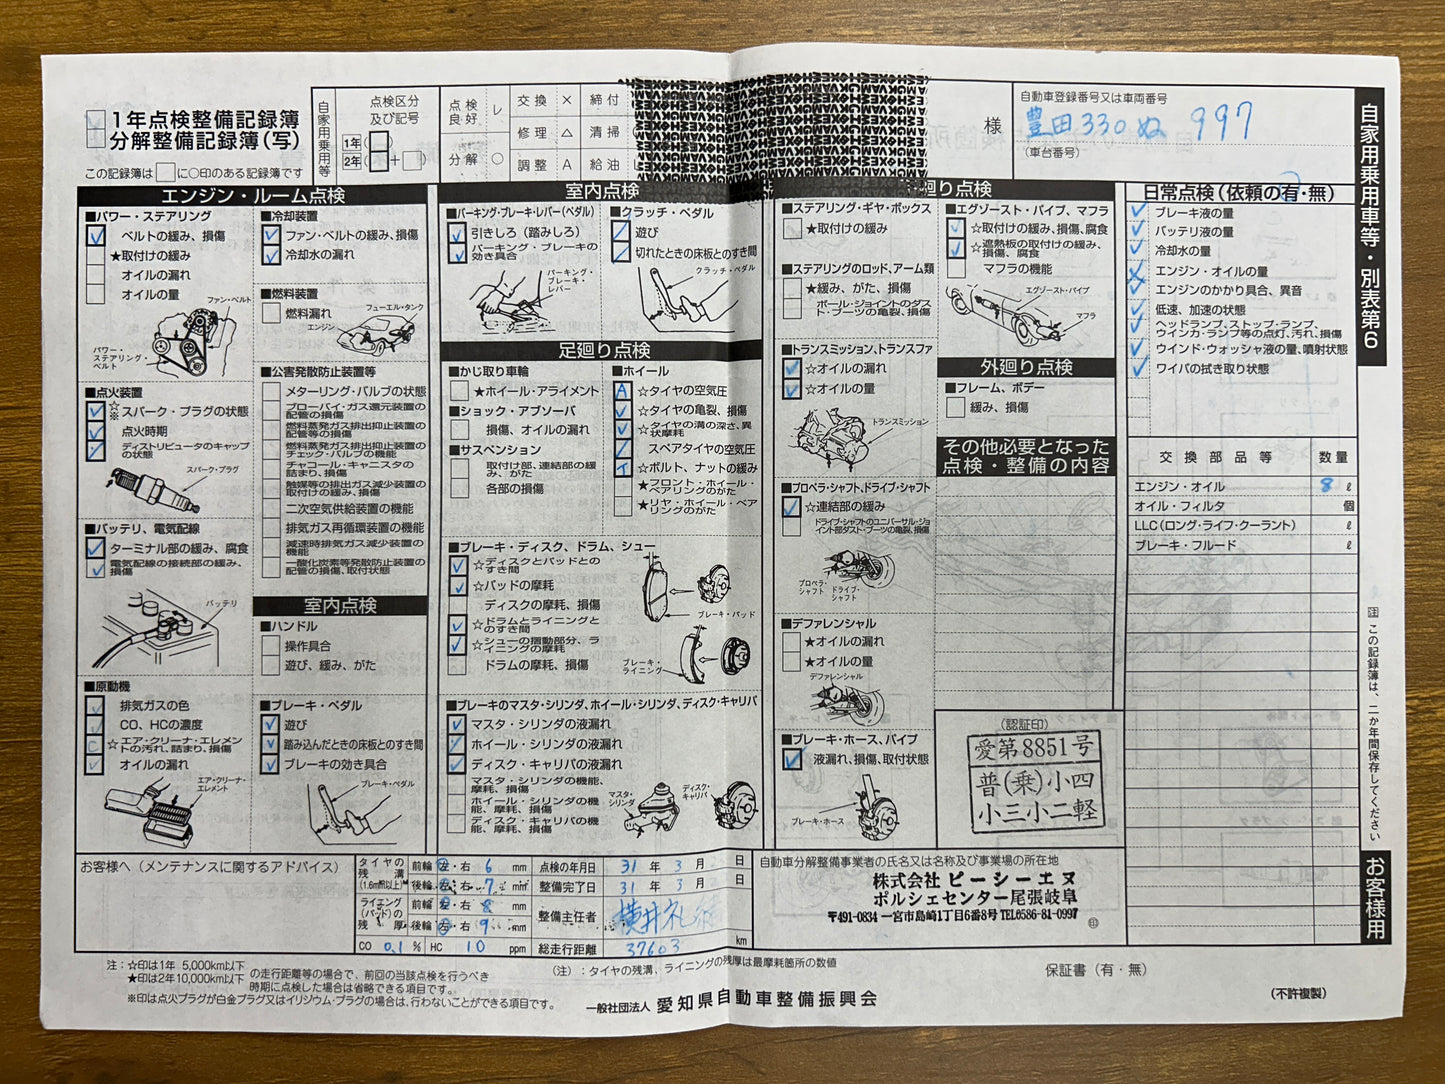 1年点検整備記録簿
分解整備記録簿(写)
この記録簿は□に○印のある記録簿です
自家用乗用等
点検区分及び記号
1年 ( )
2年 ( )+( )
点検良好 レ
分解 ○
交換 ×
修理 △
調整 A
締付
清掃
給油 L
様
自動車登録番号又は車両番号
豊田330ぬ 997
(車台番号)
自家用乗用車等・別表第6
エンジン・ルーム点検
■パワー・ステアリング
ベルトの緩み、損傷
★取付けの緩み
オイルの漏れ
オイルの量
ファン・ベルト
パワー・ステアリング・ベルト
■点火装置
☆※スパーク・プラグの状態
点火時期
ディストリビュータのキャップの状態
スパーク・プラグ
■バッテリ、電気配線
ターミナル部の緩み、腐食
電気配線の接続部の緩み、損傷
バッテリ
■原動機
排気ガスの色
CO、HCの濃度
☆エア・クリーナ・エレメントの汚れ、詰まり、損傷
オイルの漏れ
エア・クリーナ・エレメント
■冷却装置
ファン・ベルトの緩み、損傷
冷却水の漏れ
■燃料装置
燃料漏れ
フューエル・タンク
エンジン
■公害発散防止装置等
メターリング・バルブの状態
ブローバイ・ガス還元装置の配管の損傷
燃料蒸発ガス排出抑止装置の配管等の損傷
燃料蒸発ガス排出抑止装置のチェック・バルブの機能
チャコール・キャニスタの詰まり、損傷
触媒等の排出ガス減少装置の取付けの緩み、損傷
二次空気供給装置の機能
排気ガス再循環装置の機能
減速時排気ガス減少装置の機能
一酸化炭素等発散防止装置の配管の損傷、取付状態
室内点検
■ハンドル
操作具合
遊び、緩み、がた
■ブレーキ・ペダル
遊び
踏み込んだときの床板とのすき間
ブレーキの効き具合
ブレーキ・ペダル
室内点検
■パーキング・ブレーキ・レバー(ペダル)
引きしろ(踏みしろ)
パーキング・ブレーキの効き具合
パーキング・ブレーキ・レバー
■クラッチ・ペダル
遊び
切れたときの床板とのすき間
クラッチ・ペダル
足廻り点検
■かじ取り車輪
★ホイール・アライメント
■ショック・アブソーバ
損傷、オイルの漏れ
■サスペンション
取付け部、連結部の緩み、がた
各部の損傷
■ホイール
A ☆タイヤの空気圧
☆タイヤの亀裂、損傷
☆タイヤの溝の深さ、異状摩耗
スペアタイヤの空気圧
☆ボルト、ナットの緩み
★フロント・ホイール・ベアリングのがた
★リヤ・ホイール・ベアリングのがた
■ブレーキ・ディスク、ドラム、シュー
☆ディスクとパッドとのすき間
☆パッドの摩耗
ディスクの摩耗、損傷
☆ドラムとライニングとのすき間
☆シューの摺動部分、ライニングの摩耗
ドラムの摩耗、損傷
ブレーキ・パッド
ブレーキ・ライニング
■ブレーキのマスタ・シリンダ、ホイール・シリンダ、ディスク・キャリパ
マスタ・シリンダの液漏れ
ホイール・シリンダの液漏れ
ディスク・キャリパの液漏れ
マスタ・シリンダの機能、摩耗、損傷
ホイール・シリンダの機能、摩耗、損傷
ディスク・キャリパの機能、摩耗、損傷
マスタ・シリンダ
ディスク・キャリパ
廻り点検
■ステアリング・ギヤ・ボックス
★取付けの緩み
■ステアリングのロッド、アーム類
★緩み、がた、損傷
ボール・ジョイントのダスト・ブーツの亀裂、損傷
■トランスミッション、トランスファ
☆オイルの漏れ
☆オイルの量
トランスミッション
■プロペラ・シャフト、ドライブ・シャフト
☆連結部の緩み
ドライブ・シャフトのユニバーサル・ジョイント部ダスト・ブーツの亀裂、損傷
プロペラ・シャフト
ドライブ・シャフト
■デファレンシャル
★オイルの漏れ
★オイルの量
デファレンシャル
■ブレーキ・ホース、パイプ
液漏れ、損傷、取付状態
ブレーキ・ホース
■エグゾースト・パイプ、マフラ
☆取付けの緩み、損傷、腐食
☆遮熱板の取付けの緩み、損傷、腐食
マフラの機能
エグゾースト・パイプ
マフラ
外廻り点検
■フレーム、ボデー
緩み、損傷
その他必要となった
点検・整備の内容
(認証印)
愛第8851号
普(乗)小四
小三小二軽
日常点検(依頼の有・無)
ブレーキ液の量
バッテリ液の量
冷却水の量
エンジン・オイルの量
エンジンのかかり具合、異音
低速、加速の状態
ヘッドランプ、ストップ・ランプ、ウインカ・ランプ等の点灯、汚れ、損傷
ウインド・ウォッシャ液の量、噴射状態
ワイパの拭き取り状態
交換部品等 数量
エンジン・オイル 8 ℓ
オイル・フィルタ 個
LLC(ロング・ライフ・クーラント) ℓ
ブレーキ・フルード ℓ
注 この記録簿は、二か年間保存してください
お客様用
お客様へ(メンテナンスに関するアドバイス)
タイヤの残溝(1.6mm以上)
前輪 左・右 6 mm
後輪 左・右 7 mm
ライニング(パッド)の残厚
前輪 左・右 8 mm
後輪 左・右 9 mm
CO 0.1 % HC 10 ppm
点検の年月日 31年 3月 日
整備完了日 31年 3月 日
整備主任者 横井
総走行距離 37603 km
自動車分解整備事業者の氏名又は名称及び事業場の所在地
株式会社 ピーシーエヌ
ポルシェセンター尾張岐阜
〒491-0834 一宮市島崎1丁目6番8号 TEL0586-81-0997
印
注:☆印は1年 5,000km以下
★印は2年10,000km以下
の走行距離等の場合で、前回の当該点検を行うべき時期に点検した場合は省略できる項目です。
※印は点火プラグが白金プラグ又はイリジウム・プラグの場合は、行わないことができる項目です。
(注):タイヤの残溝、ライニングの残厚は最摩耗箇所の数値
一般社団法人 愛知県自動車整備振興会
保証書(有・無)
(不許複製)